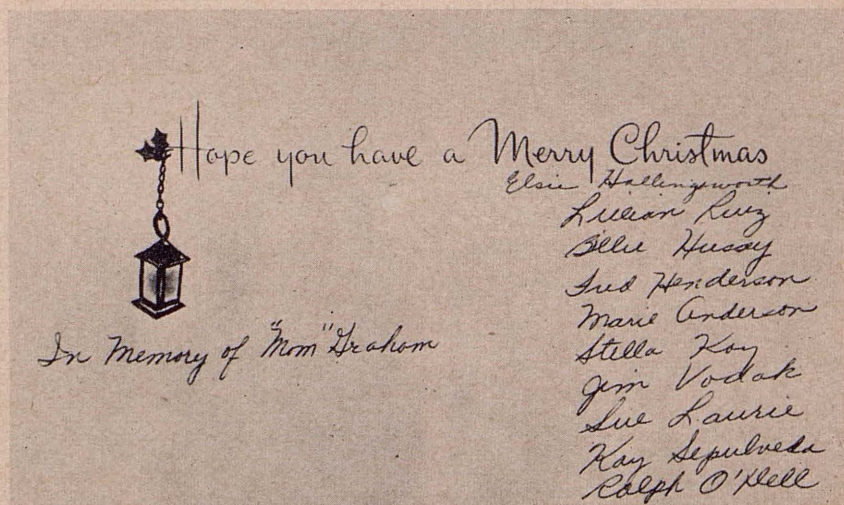 Hope you have a Merry Christmas
Elsie Hollingsworth
Lillian Ruiz
Billie Hussey
Fred Henderson
Marie Anderson
Stella Kay
Jim Vodak
Sue Laurie
Kay Sepulveda
Ralph O'Dell
In Memory of "Mom" Graham